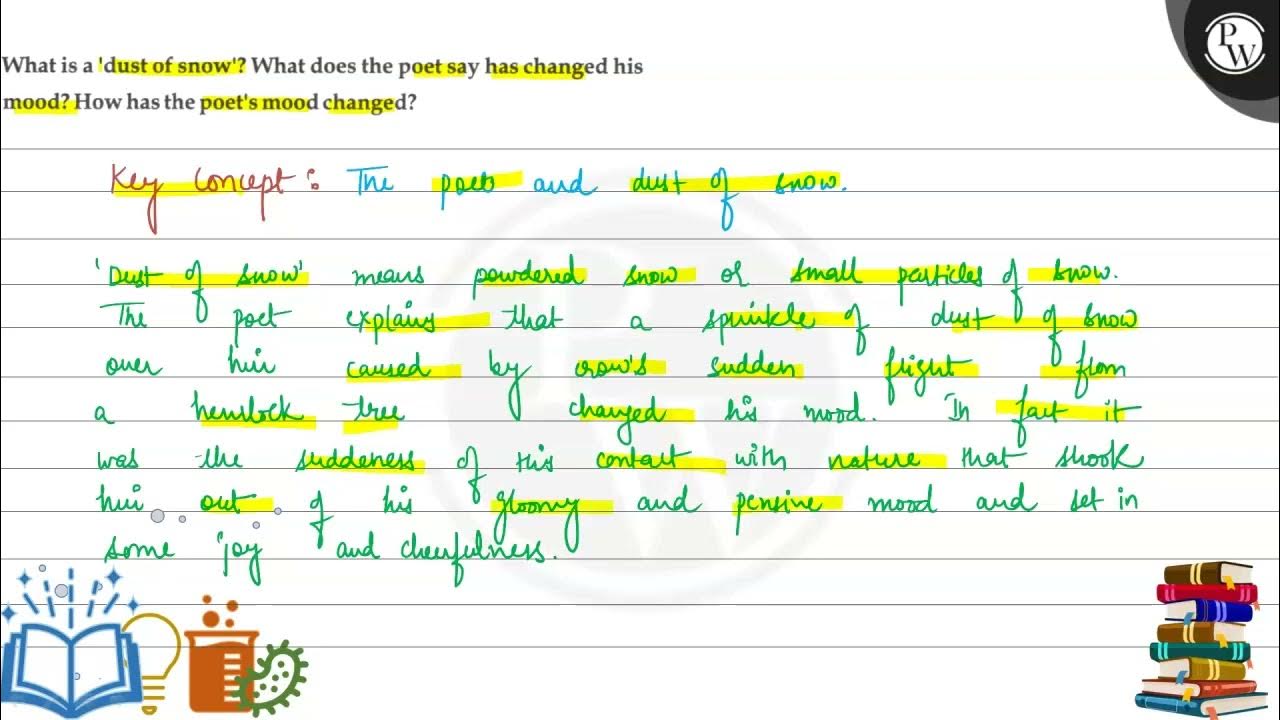 PW
What is a 'dust of snow'? What does the poet say has changed his
mood? How has the poet's mood changed?
Key Concept: The poet and dust of snow.
'Dust of snow' means powdered snow or small particles of snow.
The poet explains that a sprinkle of dust of snow
over him caused by crow's sudden flight from
a hemlock tree changed his mood. In fact it
was the suddeness of this contact with nature that shook
him out of his gloomy and pensive mood and set in
some joy and cheerfulness.